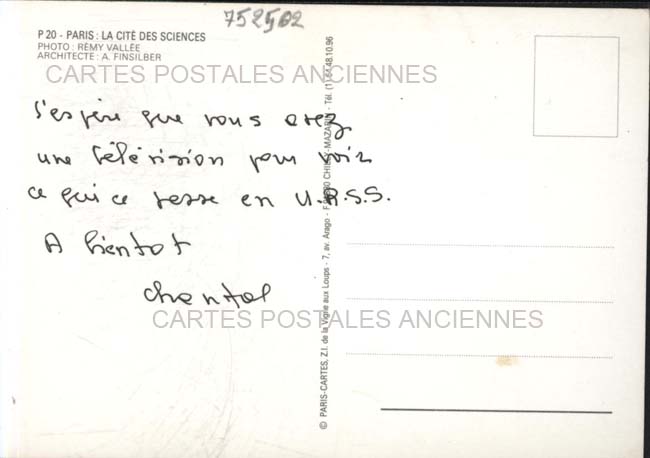 752502
P 20 - PARIS : LA CITÉ DES SCIENCES
PHOTO : RÉMY VALLÉE
ARCHITECTE : A. FINSILBER
CARTES POSTALES ANCIENNES
J'espère que vous avez
une télévision pour voir
ce qui ce passe en U.R.S.S.
A bientot
Chantal
CARTES POSTALES ANCIENNES
© PARIS-CARTES, Z.I. de la Vigne aux Loups - 7, av. Arago - F CHILLY-MAZARIN - Tél. (1) 64.48.10.96